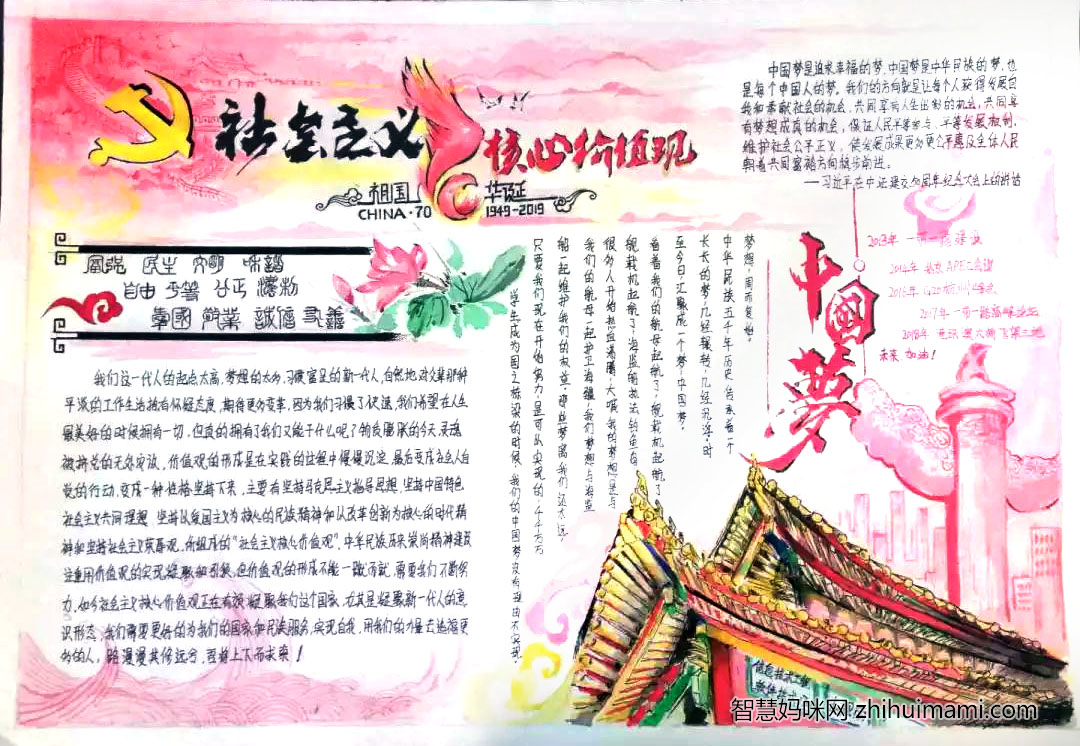 社会主义
核心价值观
祖国
华诞
CHINA·70
1949-2019
富强 民主 文明 和谐
自由 平等 公正 法治
爱国 敬业 誠信 友善
我们这一代人的起点太高,梦想的太多,习惯富足的新一代人,自然地对父辈那种
平淡的工作生活抱有怀疑态度,期待更多变革,因为我们习惯了快速,我们希望在人生
最美好的时候拥有一切,但真的拥有了我们又能干什么呢?物质膨胀的今天,灵魂
被拷总的无处安放,价值观的形成是在实践的过程中慢慢沉淀,最后变成社会人自
觉的行动,变成一种性格坚持下来,主要有坚持马克思主义指导思想,坚持中国特色
社会主义共同理想,坚持以爱国主义为核心的民族精神和以改革创新为核心的时代精
神和坚持社会主义荣辱观,所组成的“社会主义核心价值观”,中华民族历来崇尚精神建设
注重用价值观的实现凝聚和引领,但价值观的形成不能一蹴而就,需要我们不断努
力,如今社会主义核心价值观正在有效凝聚我们这个国家,尤其是凝聚新一代人的意
识形态,我们需要更好的为我们的国家和民族服务,实现自我,用我们的力量去造福更
多的人,路漫漫其修远兮,吾将上下而求索!
中国梦是追求幸福的梦,中国梦是中华民族的梦,也
是每个中国人的梦。我们的方向就是让每个人获得发展自
我和奉献社会的机会,共同享有人生出彩的机会,共同享
有梦想成真的机会,保证人民平等参与、平等发展权利,
维护社会公平正义,使发展成果更多更公平惠及全体人民
朝着共同富裕方向稳步前进。
——习近平在中法建交50周年纪念大会上的讲话
中國夢
2013年 一带一路建设
2014年 北京APEC会议
2016年 G20杭州峰会
2017年 一带一路高峰论坛
未来 加油!
梦想,周而复始。
中华民族五千年历史传承着一个
长长的梦,几经辗转,几经沉浮,时
至今日,汇聚成一个梦,中国梦。
看着我们的航母起航了,舰载机起航了
我们的航母一起护卫海疆,我们梦想与海监
船一起维护我们的权益,哪些梦离我们还太远,
只要我们现在开始努力,是可以实现的,千千万万
学生成为国之栋梁的时候,我们的中国梦,没有理由不实现。
智慧妈咪网 zhihuimami.com